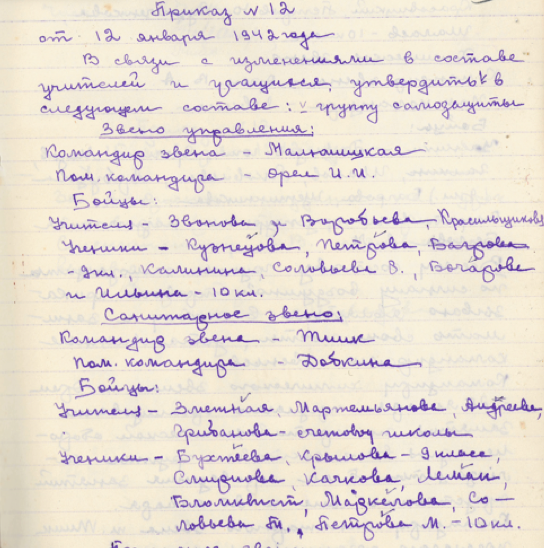 Приказ № 12
от 12 января 1942 года
В связи с изменениями в составе
учителей и учащихся, утвердить в
следующем составе: v группу самозащиты
Звено управления:
Командир звена - Малюшицкая
Пом. командира - Орел И.И.
Бойцы:
Учителя - Звонова, Воробьева, Красильщикова
Ученики - Кузнецова, Петрова, Вагрова
- 9 кл., Калинина, Соловьева В., Бочарове
и Ильина - 10 кл.
Санитарное звено:
Командир звена - Тиик
Пом. командира - Добкина
Бойцы:
Учителя - Злетная, Мартемьянова, Андреева,
Грибанова - счетовод школы
Ученики - Бухтеева, Крылова - 9 класс
Смирнова, Качкова, Леман,
Бломквист, Маркелова, Со-
ловьева Т., Петрова М. - 10 кл.